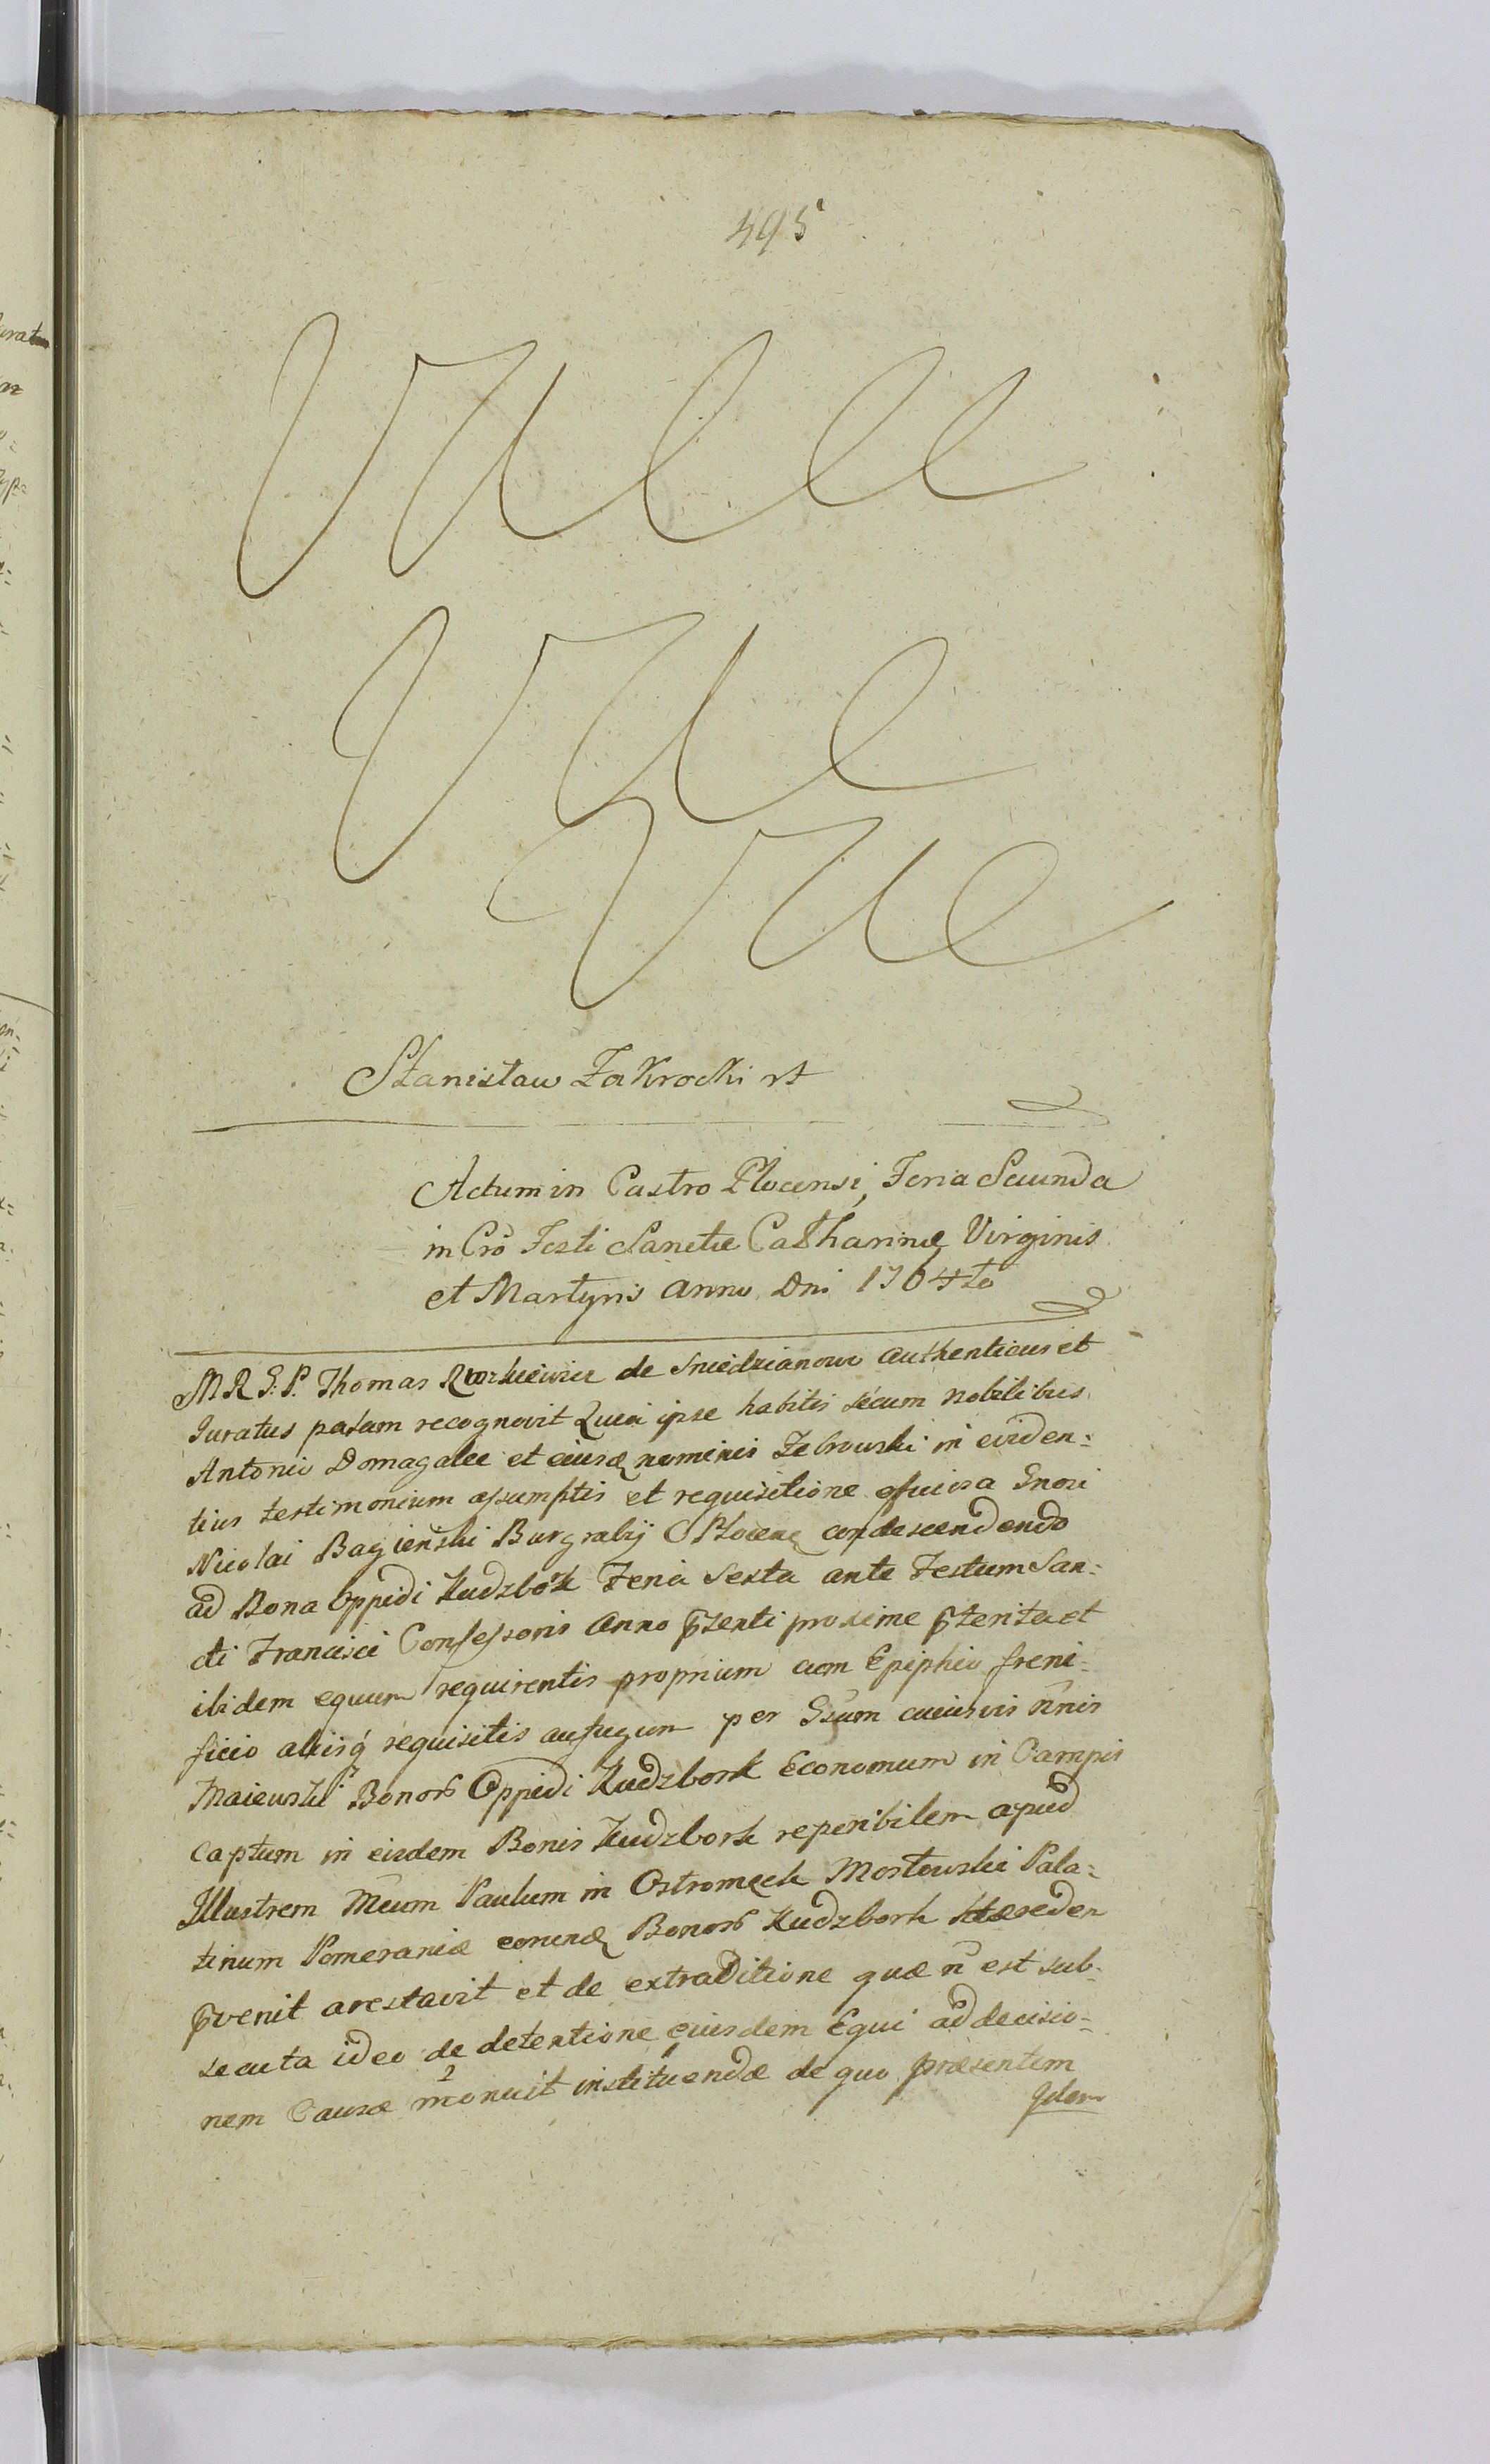 495
Stanisław Zakrocki
Actum in Castro Plocensi, Feria Secunda
in Cro Festi Sanctæ Catharinæ Virginis
et Martyris Anno Dni 1764to
MRG.P. Thomas de Sniedzianowo authenticus et
Iuratus palam recognovit Quia ipse habitis secum nobilibus
Antonio Domagalee et nominis Zebrowski in eviden:
tius testimonium assumptis et requisitione officiosa Gnosi
Nicolai Bagieński Burgrabij C Plocen condescendendo
ad Bona Oppidi Kudzbork Feria Sexta ante Festum San:
cti Francisci Confessoris Anno pzenti proxime pterita et
ibidem equum requirentis proprium cum Epiphio freni:
ficio alijsq requisitis aufugum per Gsum cuiusvis nnis
Maiewski Bonor Oppidi Kudzbork Economum in Campis
captum in eisdem Bonis Kudzbork reperibilem apud
Illustrem Mcum Paulum in Ostromęck Mostowski Pala:
tinum Pomeraniæ eorund Bonor Kudzbork Hæreden
pvenit arestavit et de extraditione quæ n est sub:
secuta ideo de detentione eiusdem Equi ad decisio:
nem Causæ monuit instituendæ de quo præsentem